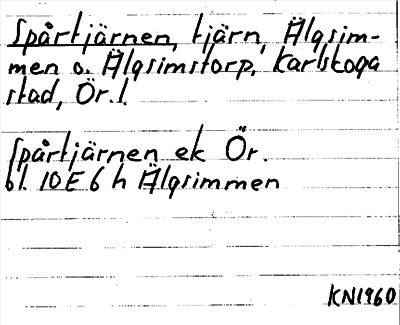 Spårtjärnen, tjärn, Älgsim-
men o. Älgsimstorp, Karlskoga
stad, Ör.l.
Spårtjärnen ek Ör.
bl. 10E6h Älgsimmen
KN1960